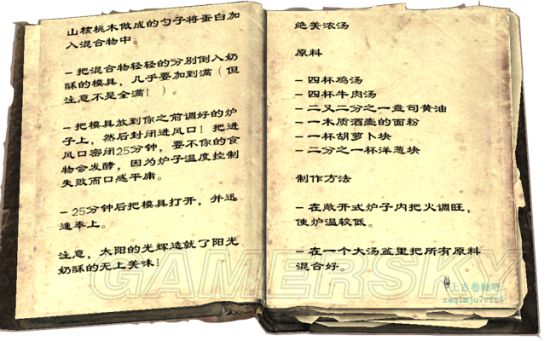 山核桃木做成的勺子将蛋白加
入混合物中。
- 把混合物轻轻的分别倒入奶
酥的模具，几乎要加到满（但
注意不是全满！）。
- 把模具放到你之前调好的炉
子上，然后封闭进风口！把进
风口密闭25分钟，要不你的食
物会发酵，因为炉子温度控制
失败而口感平庸。
- 25分钟后把模具打开，并迅
速奉上。
注意，太阳的光辉造就了阳光
奶酥的无上美味！
绝美浓汤
原料
- 四杯鸡汤
- 四杯牛肉汤
- 二又二分之一盎司黄油
- 一木质酒壶的面粉
- 一杯胡萝卜块
- 二分之一杯洋葱块
制作方法
- 在敞开式炉子内把火调旺，
使炉温较低。
- 在一个大汤盆里把所有原料
混合好。
GAMERSKY
上古卷轴吧
zaqimju7vfr4